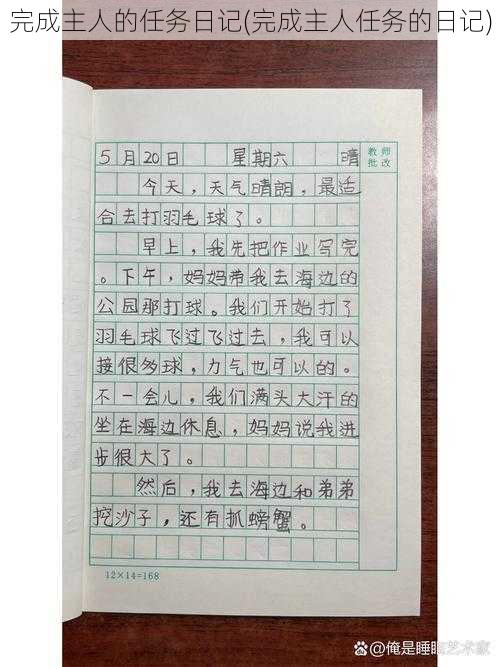 完成主人的任务日记(完成主人任务的日记)
教师
批改
5月20日 星期六 晴
今天，天气晴朗，最适
合去打羽毛球了。
早上，我先把作业写完
。下午，妈妈带我去海边的
公园那打球。我们开始打了
羽毛球飞过飞过去，我可以
接很多球，力气也可以的。
不一会儿，我们满头大汗的
坐在海边休息，妈妈说我进
步很大了。
然后，我去海边和弟弟
挖沙子，还有抓螃蟹。
12×14=168
@俺是睡眠艺术家